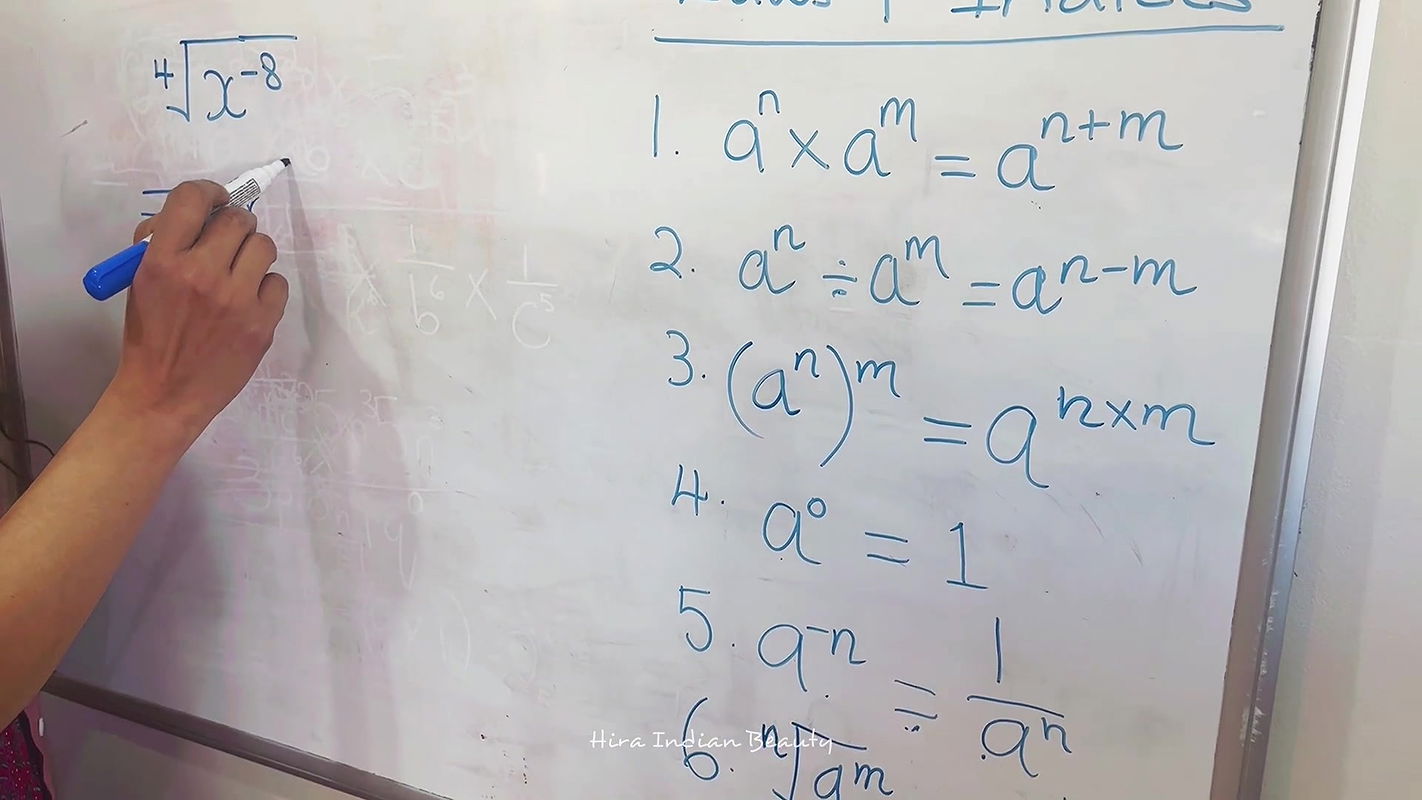 ⁴√x⁻⁸
=
1. aⁿ × aᵐ = aⁿ⁺ᵐ
2. aⁿ ÷ aᵐ = aⁿ⁻ᵐ
3. (aⁿ)ᵐ = aⁿˣᵐ
4. a⁰ = 1
5. a⁻ⁿ = 1/aⁿ
6. ⁿ√aᵐ
Hira Indian Beauty